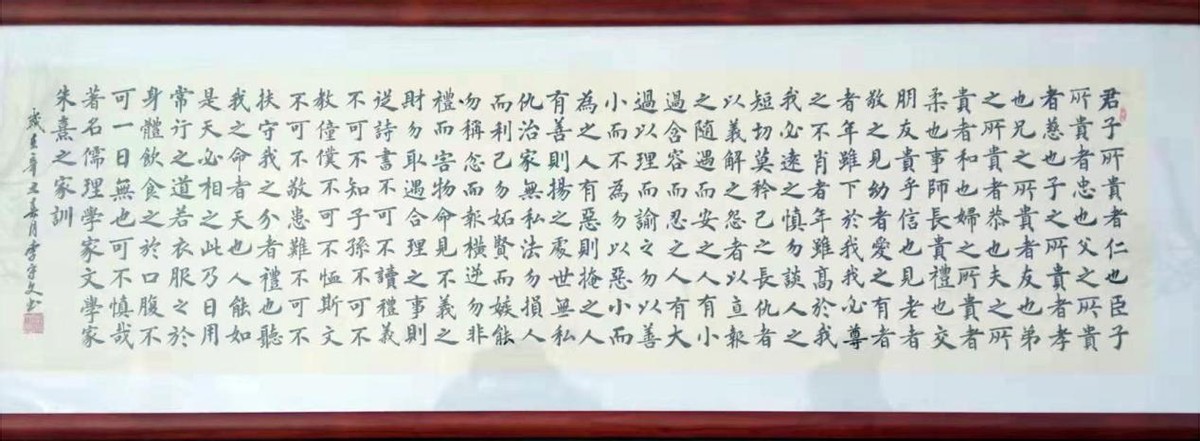 君子所貴者仁也臣子
所貴者忠也父之所貴
者慈也子之所貴者孝
也兄之所貴者友也弟
之所貴者恭也夫之所
貴者和也婦之所貴者
柔也事師長貴禮也交
朋友貴乎信也見老者
敬之見幼者愛之有者
者年雖下於我我必尊
之不肖者年雖高於我
我必遠之慎勿談人之
短切莫矜己之長仇者
以義解之怨者以直報
之隨遇而安之人有小
過含容而忍之人有大
過以理而諭之勿以善
小而不為勿以惡小而
為之人有惡則掩之人
有善則揚之處世無私
仇治家無私法勿損人
而利己勿妬賢而嫉能
勿稱忿而報橫逆勿非
禮而害物命見不義之
財勿取遇合理之事則
從詩書不可不讀禮義
不可不知子孫不可不
教僮僕不可不恤斯文
不可不敬患難不可不
扶守我之分者禮也聽
我之命者天也人能如
是天必相之此乃日用
常行之道若衣服之於
身體飲食之於口腹不
可一日無也可不慎哉
著名儒理學家文學家
朱熹之家訓
歲在辛丑春月李守文書